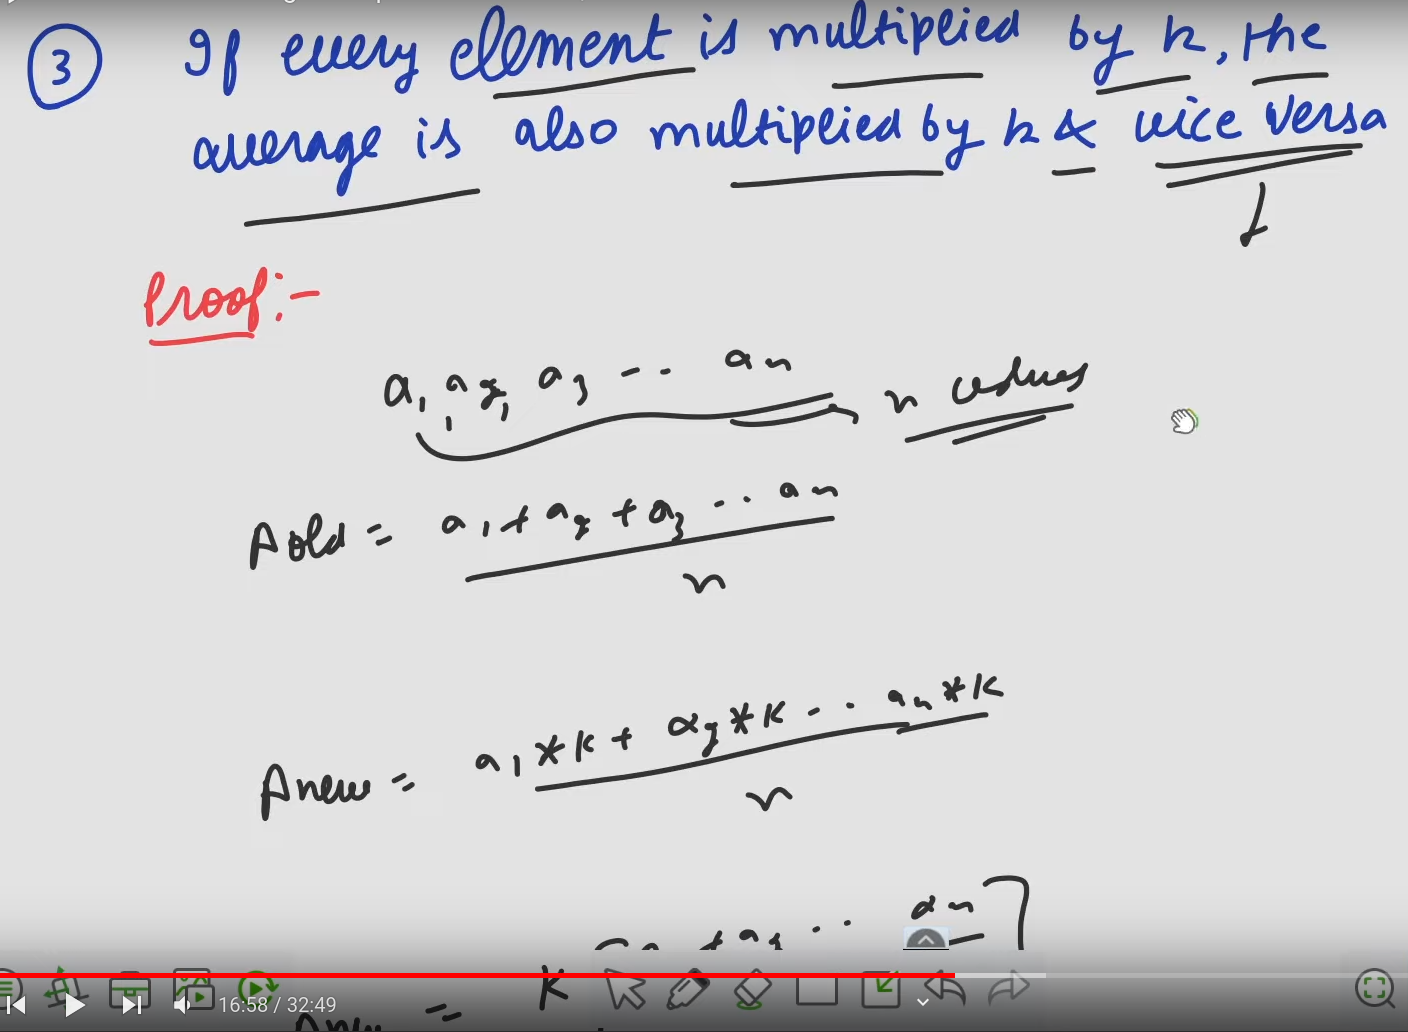 ③ If every element is multiplied by k, the
average is also multiplied by k & vice versa
Proof:-
a1, a2, a3 -.. an n values
Aold = a1 + a2 + a3 ... an
n
Anew = a1*k + a2*k -.. an*k
n
an
Anew = k
16:58 / 32:49